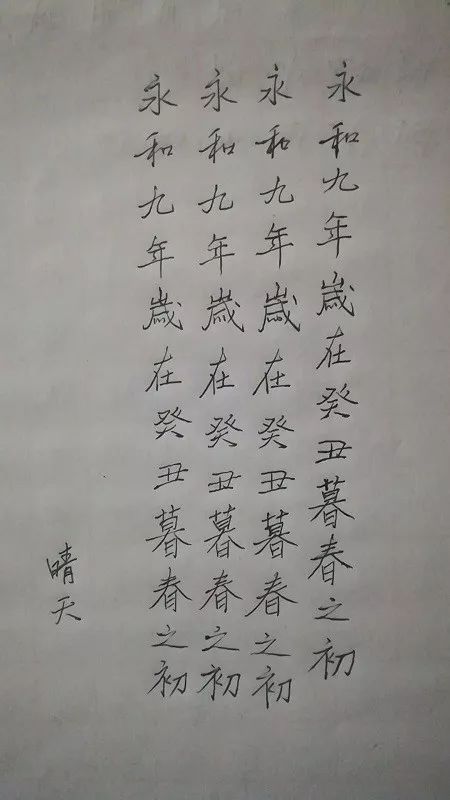 永和九年歲在癸丑暮春之初
永和九年歲在癸丑暮春之初
永和九年歲在癸丑暮春之初
永和九年歲在癸丑暮春之初
晴天